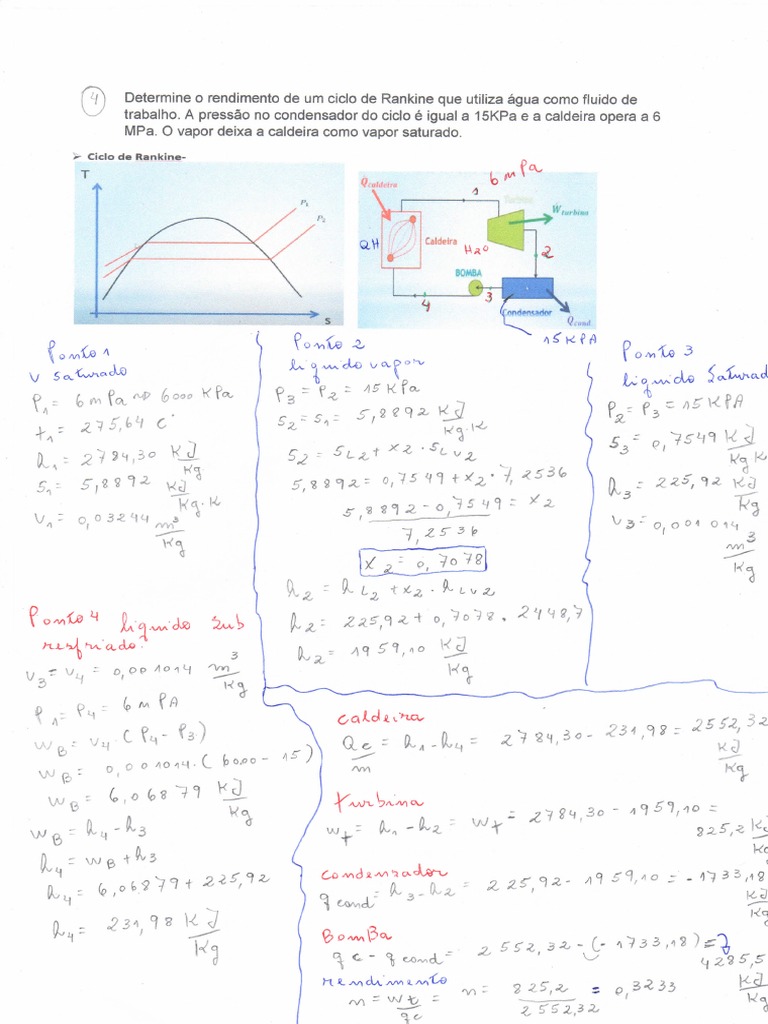 4
Determine o rendimento de um ciclo de Rankine que utiliza água como fluido de
trabalho. A pressão no condensador do ciclo é igual a 15KPa e a caldeira opera a 6
MPa. O vapor deixa a caldeira como vapor saturado.
➢ Ciclo de Rankine-
T
P₁
P₂
s
1 6 mPa
Q caldeira
Turbina
Ẇ turbina
QH
Caldeira
H₂O
2
BOMBA
4
3
Condensador
Q̇ cond.
15 KPA
Ponto 1
V Saturado
P₁ = 6 mPa => 6000 KPa
t₁ = 275,64 C°
h₁ = 2784,30 KJ/Kg
s₁ = 5,8892 KJ/Kg.K
v₁ = 0,03244 m³/Kg
Ponto 2
liquido vapor
P₃ = P₂ = 15 KPa
s₂ = s₁ = 5,8892 KJ/Kg.K
s₂ = s_L2 + x₂ . s_LV2
5,8892 = 0,7549 + x₂ . 7,2536
5,8892 - 0,7549 / 7,2536 = x₂
x₂ = 0,7078
h₂ = h_L2 + x₂ . h_LV2
h₂ = 225,92 + 0,7078 . 2448,7
h₂ = 1959,10 KJ/Kg
Ponto 3
liquido Saturad
P₂ = P₃ = 15 KPA
s₃ = 0,7549 KJ/Kg K
h₃ = 225,92 KJ/Kg
v₃ = 0,001014 m³/Kg
Ponto 4 liquido Sub
resfriado.
v₃ = v₄ = 0,001014 m³/Kg
P₁ = P₄ = 6 mPA
w_B = v₄ . (P₄ - P₃)
w_B = 0,001014 . (6000 - 15)
w_B = 6,06879 KJ/Kg
w_B = h₄ - h₃
h₄ = w_B + h₃
h₄ = 6,06879 + 225,92
h₄ = 231,98 KJ/Kg
caldeira
Qc/m = h₁ - h₄ = 2784,30 - 231,98 = 2552,32 KJ/Kg
turbina
w_t = h₁ - h₂ = w_t = 2784,30 - 1959,10 =
825,2 KJ/Kg
condensador
q cond = h₃ - h₂ = 225,92 - 1959,10 = - 1733,18 KJ/Kg
BomBa
q c - q cond = 2552,32 - (- 1733,18) =
4285,5 KJ/Kg
rendimento
n = wt/qc = n = 825,2/2552,32 = 0,3233